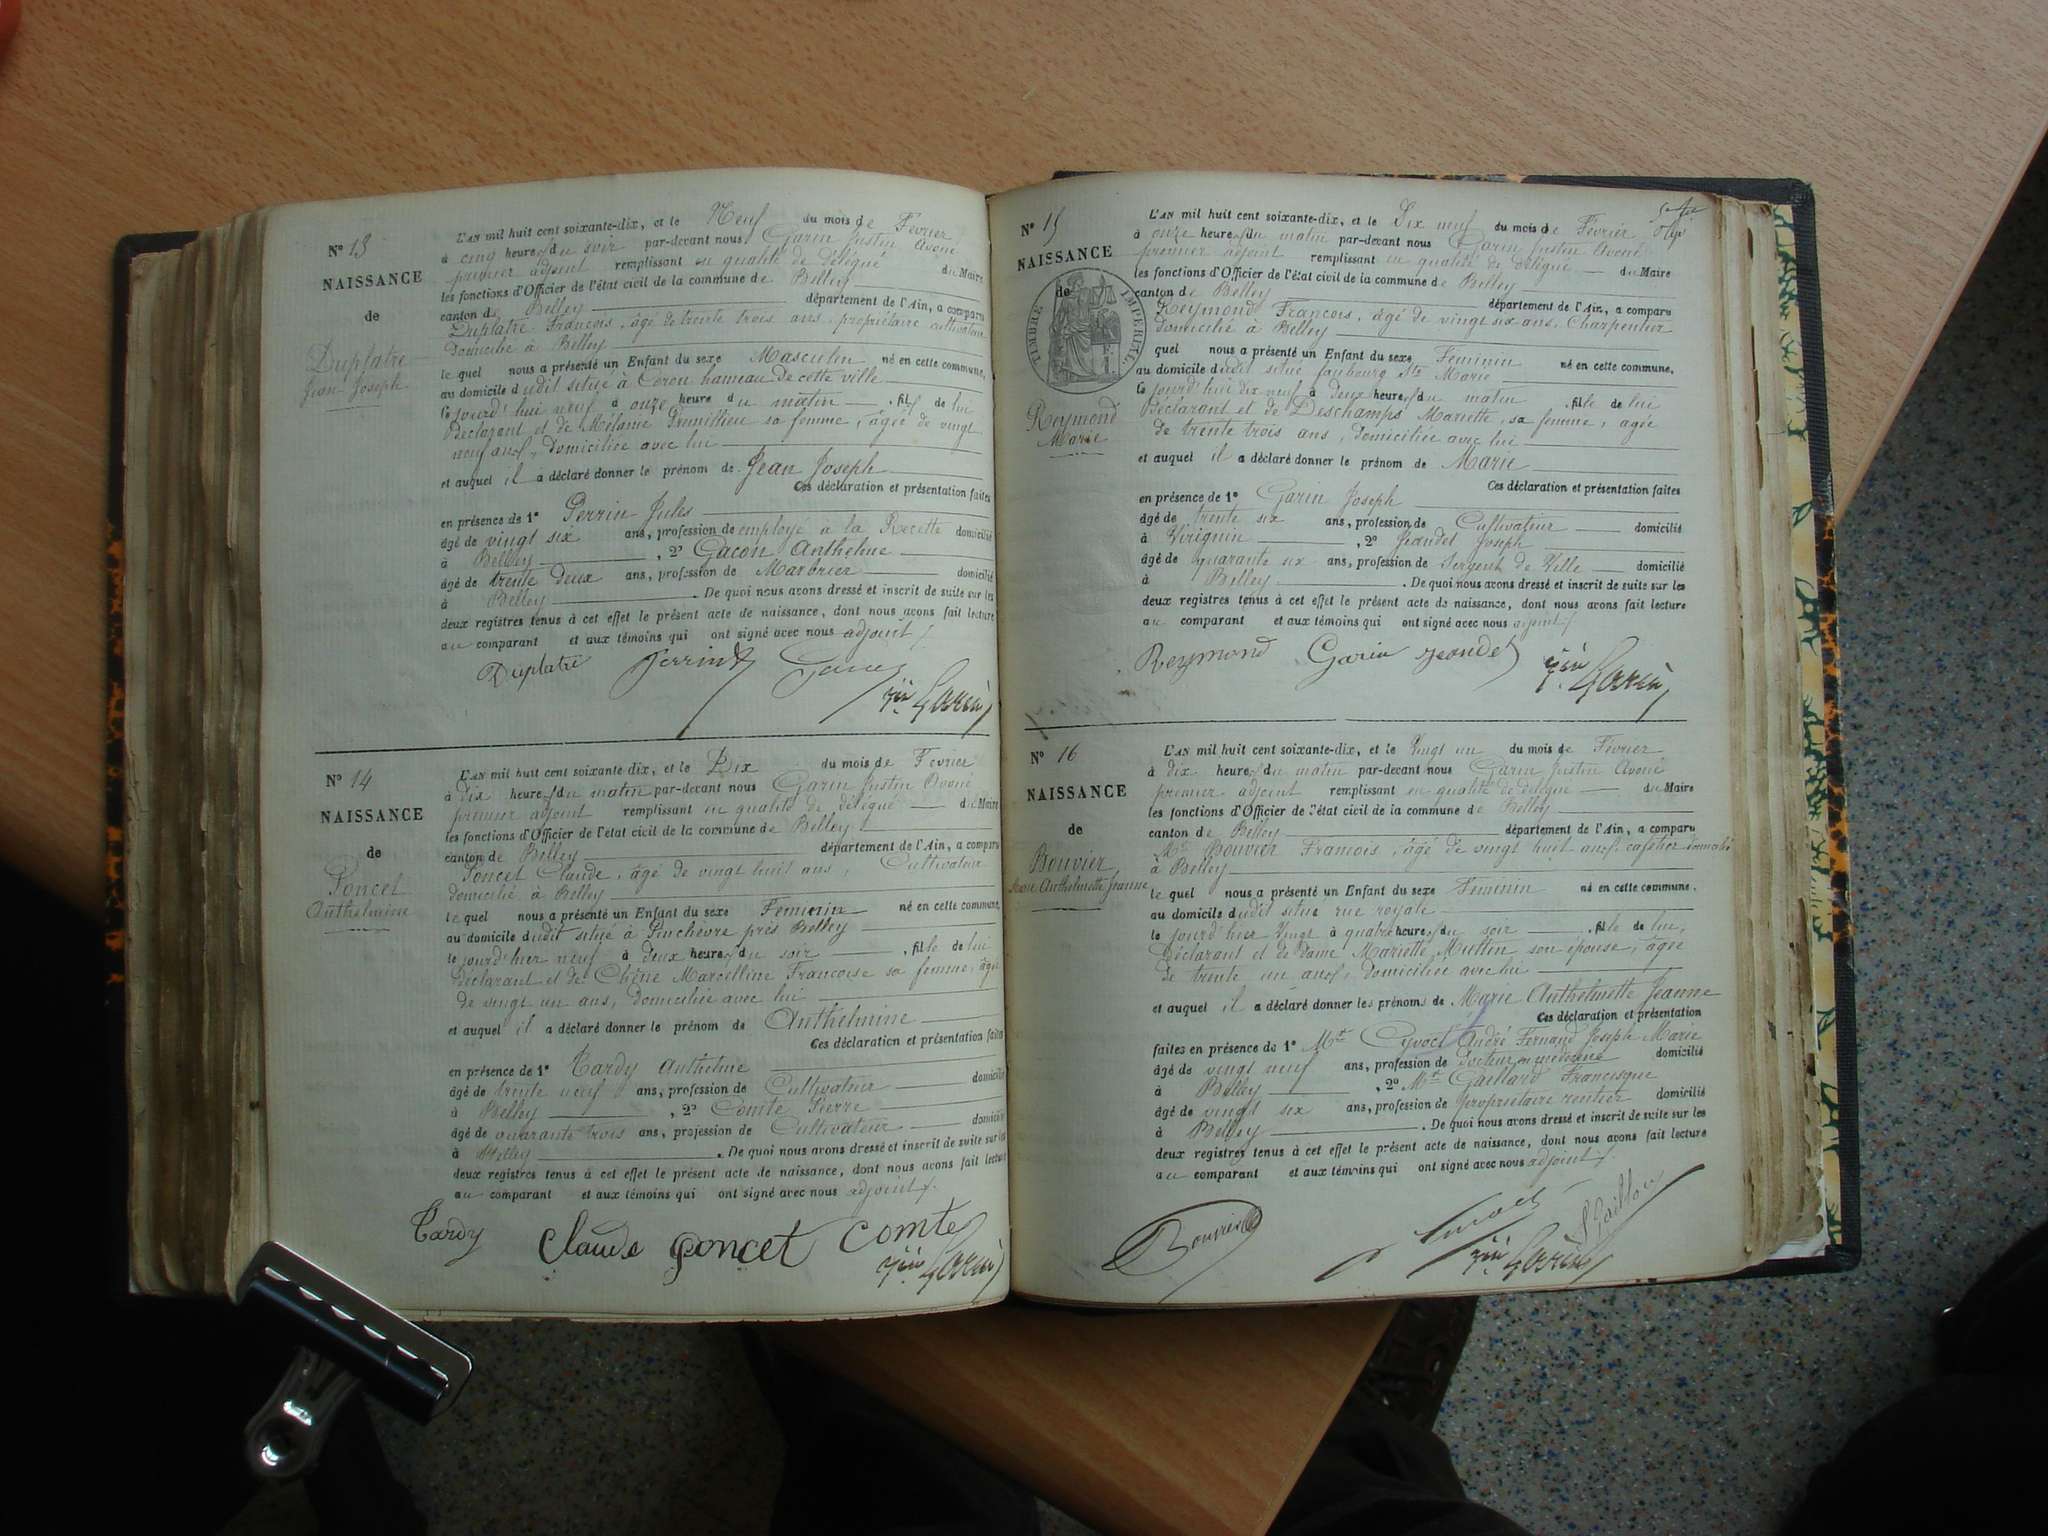 N° 13
NAISSANCE
de
Duplatre
Jean Joseph
L'AN mil huit cent soixante-dix, et le Neuf du mois de Février
à cinq heures du soir par-devant nous Garin Justin Avoué
premier adjoint remplissant en qualité de délégué du Maire
les fonctions d'Officier de l'état civil de la commune de Belley
canton de Belley département de l'Ain, a comparu
Duplatre François, âgé de trente trois ans, propriétaire cultivateur
domicilié à Belley
le quel nous a présenté un Enfant du sexe Masculin né en cette commune,
au domicile dudit situé à Coron hameau de cette ville
le jourd'hui neuf à onze heures du matin, fils de lui
Déclarant et de Mélanie sa femme, âgée de vingt
neuf ans, domiciliée avec lui
et auquel il a déclaré donner le prénom de Jean Joseph
Ces déclaration et présentation faites
en présence de 1° Perrin Jules
âgé de vingt six ans, profession de employé à la Recette domicilié
à Belley, 2° Gacon Anthelme
âgé de trente deux ans, profession de Marbrier domicilié
à Belley. De quoi nous avons dressé et inscrit de suite sur les
deux registres tenus à cet effet le présent acte de naissance, dont nous avons fait lecture
au comparant et aux témoins qui ont signé avec nous adjoint
Duplatre Perrin Gacon
Jin Garin
N° 14
NAISSANCE
de
Poncet
Anthelmine
L'AN mil huit cent soixante-dix, et le Dix du mois de Février
à dix heures du matin par-devant nous Garin Justin Avoué
premier adjoint remplissant en qualité de délégué du Maire
les fonctions d'Officier de l'état civil de la commune de Belley
canton de Belley département de l'Ain, a comparu
Poncet Claude, âgé de vingt huit ans, Cultivateur
domicilié à Belley
le quel nous a présenté un Enfant du sexe Feminin né en cette commune,
au domicile dudit situé à près Belley
le jourd'hier neuf à deux heures du soir, fille de lui
Déclarant et de Chêne Marcelline Françoise sa femme, âgée
de vingt un ans, domiciliée avec lui
et auquel il a déclaré donner le prénom de Anthelmine
Ces déclaration et présentation faites
en présence de 1° Tardy Anthelme
âgé de trente neuf ans, profession de Cultivateur domicilié
à Belley, 2° Comte Pierre
âgé de quarante trois ans, profession de Cultivateur domicilié
à Belley. De quoi nous avons dressé et inscrit de suite sur les
deux registres tenus à cet effet le présent acte de naissance, dont nous avons fait lecture
au comparant et aux témoins qui ont signé avec nous adjoint
Tardy Claude Poncet Comte
Jin Garin
N° 15
NAISSANCE
de
TIMBRE IMPERIAL
Reymond
Marie
L'AN mil huit cent soixante-dix, et le Dix neuf du mois de Février
à onze heures du matin par-devant nous Garin Justin Avoué
premier adjoint remplissant en qualité de délégué du Maire
les fonctions d'Officier de l'état civil de la commune de Belley
canton de Belley département de l'Ain, a comparu
Reymond François, âgé de vingt six ans, Charpentier
domicilié à Belley
quel nous a présenté un Enfant du sexe Feminin né en cette commune,
au domicile dudit situé faubourg Ste Marie
le jourd'hui dix neuf à deux heures du matin, fille de lui
Déclarant et de Deschamps Mariette, sa femme, âgée
de trente trois ans, domiciliée avec lui
et auquel il a déclaré donner le prénom de Marie
Ces déclaration et présentation faites
en présence de 1° Garin Joseph
âgé de trente six ans, profession de Cultivateur domicilié
à Virignin, 2° Jeandet Joseph
âgé de quarante six ans, profession de Sergent de Ville domicilié
à Belley. De quoi nous avons dressé et inscrit de suite sur les
deux registres tenus à cet effet le présent acte de naissance, dont nous avons fait lecture
au comparant et aux témoins qui ont signé avec nous adjoint
Reymond Garin Jeandet
Jin Garin
N° 16
NAISSANCE
de
Bouvier
Marie Anthelmette Jeanne
L'AN mil huit cent soixante-dix, et le Vingt un du mois de Février
à dix heures du matin par-devant nous Garin Justin Avoué
premier adjoint remplissant en qualité de délégué du Maire
les fonctions d'Officier de l'état civil de la commune de Belley
canton de Belley département de l'Ain, a comparu
Mr Bouvier François, âgé de vingt huit ans, cafetier domicilié
à Belley
le quel nous a présenté un Enfant du sexe Feminin né en cette commune,
au domicile dudit situé rue royale
le jourd'hier Vingt à quatre heures du soir, fille de lui,
Déclarant et de Dame Mariette Muttin son épouse, âgée
de trente un ans, domiciliée avec lui
et auquel il a déclaré donner les prénoms de Marie Anthelmette Jeanne
Ces déclaration et présentation
faites en présence de 1° Mr Cyvoct André Fernand Joseph Marie
âgé de vingt neuf ans, profession de Docteur en médecine domicilié
à Belley, 2° Mr Gaillard Francisque
âgé de vingt six ans, profession de propriétaire rentier domicilié
à Belley. De quoi nous avons dressé et inscrit de suite sur les
deux registres tenus à cet effet le présent acte de naissance, dont nous avons fait lecture
au comparant et aux témoins qui ont signé avec nous adjoint
Bouvier Cyvoct Gaillard
Jin Garin